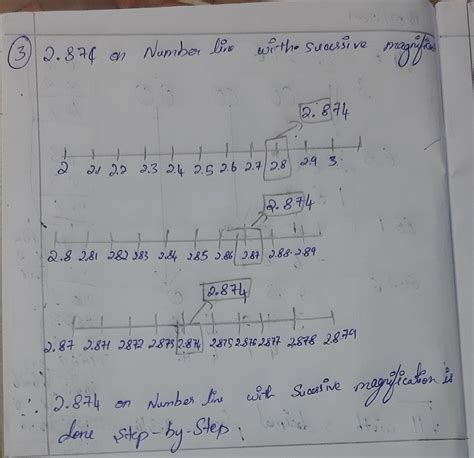 ③ 2.874 on Number line with Sucessive magnific
2.874
2 2.1 2.2 2.3 2.4 2.5 2.6 2.7 2.8 2.9 3.
2.874
2.8 2.81 2.82 2.83 2.84 2.85 2.86 2.87 2.88 2.89
2.874
2.87 2.871 2.872 2.873 2.874 2.875 2.876 2.877 2.878 2.879
∴ 2.874 on Number line with Sucessive magnification is
done Step-by-Step.